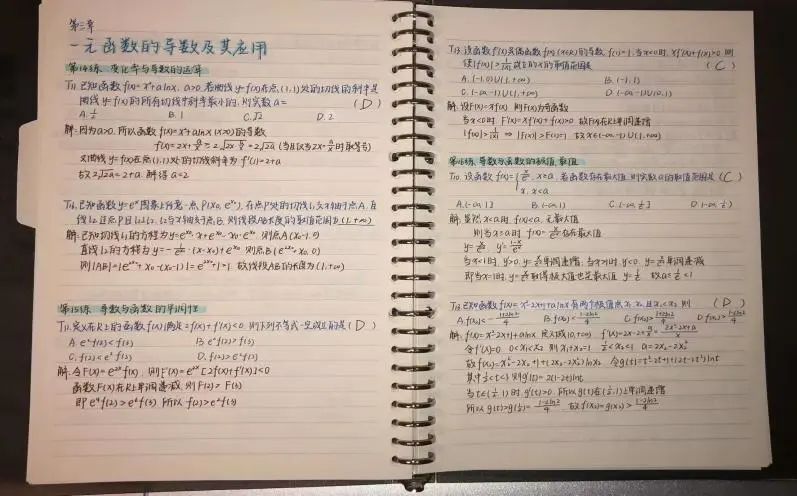 第二章
一元函数的导数及其应用
第14练 变化率与导数的运算
T11. 已知函数f(x)=x²+alnx, a>0, 若曲线y=f(x)在点(1,1)处的切线的斜率是
曲线y=f(x)的所有切线中斜率最小的, 则实数a= (D)
A. 1/2 B. 1 C. √2 D. 2
解: 因为a>0, 所以函数f(x)=x²+alnx (x>0)的导数
f'(x)=2x+a/x≥2√(2x·a/x)=2√(2a) (当且仅当2x=a/x时取等号)
又曲线y=f(x)在点(1,1)处的切线斜率为f'(1)=2+a
故2√(2a)=2+a, 解得a=2
T16. 已知函数y=eˣ图象上任意一点P(x₀, e^x₀), 在点P处的切线l₁与x轴于点A, 直
线l₂过点P且l₂⊥l₁, l₂与x轴交于点B, 则线段AB长度的取值范围为(1,+∞)
解: 已知切线l₁的方程为y=e^x₀·x+e^x₀-x₀·e^x₀ 则点A(x₀-1,0)
直线l₂的方程为y=-1/e^x₀·(x-x₀)+e^x₀ 则点B(e^2x₀+x₀,0)
则|AB|=|e^2x₀+x₀-(x₀-1)|=e^2x₀+1>1 故线段AB的长度为(1,+∞)
第15练 导数与函数的单调性
T11. 定义在R上的函数f(x)满足2f(x)+f'(x)<0, 则下列不等式一定成立的是(D)
A. e²f(2)<f(3) B. e²f(2)>f(3)
C. f(2)<e²f(3) D. f(2)>e²f(3)
解: 令F(x)=e^2x f(x), 则F'(x)=e^2x[2f(x)+f'(x)]<0
函数F(x)在R上单调递减, 则F(2)>F(3)
即e⁴f(2)>e⁶f(3) 所以f(2)>e²f(3)
T13. 设函数f'(x)是偶函数f(x)(x∈R)的导数, f(1)=1, 当x<0时, xf'(x)+f(x)>0 则
使|f(x)|>1/|x|成立的x的取值范围是 (C)
A. (-1,0)∪(1,+∞) B. (-1,1)
C. (-∞,-1)∪(1,+∞) D. (-∞,-1)∪(0,1)
解: 设F(x)=xf(x) 则F(x)为奇函数
当x<0时 F'(x)=xf'(x)+f(x)>0 故F(x)在R上单调递增
|f(x)|>1/|x| ⇒ |F(x)|>F(1)=1 故x∈(-∞,-1)∪(1,+∞)
第16练 导数与函数的极值、最值
T10. 设函数f(x)={x/eˣ, x≥a, 若函数存在最大值, 则实数a的取值范围是 (C)
x, x<a
A. (-∞,1] B. (-∞,1) C. (-∞,1/e] D. (-∞,1/e)
解: 显然x<a时 f(x)<a, 无最大值
则当x≥a时 f(x)=x/eˣ存在最大值
y=x/eˣ y'=(1-x)/eˣ
当x<1时, y'>0, y=x/eˣ单调递增; 当x>1时, y'<0, y=x/eˣ单调递减
即当x=1时, y=x/eˣ取得极大值也是最大值 y=1/e 故a≤1/e<1
T12. 已知函数f(x)=x²-2x+1+alnx有两个极值点x₁, x₂, 且x₁<x₂ 则 (D)
A. f(x₂)<-(1+2ln2)/4 B. f(x₂)<(1-2ln2)/4 C. f(x₂)>(1+2ln2)/4 D. f(x₂)>(1-2ln2)/4
解: f(x)=x²-2x+1+alnx 定义域(0,+∞) f'(x)=2x-2+a/x=(2x²-2x+a)/x
令f'(x)=0 0<x₁<x₂ 则x₁+x₂=1 1/2<x₂<1 a=2x₂-2x₂²
故f(x₂)=x₂²-2x₂+1+(2x₂-2x₂²)lnx₂ 令g(t)=t²-2t+1+(2t-2t²)lnt
其中1/2<t<1 则g'(t)=2(1-2t)lnt
当t∈(1/2,1)时 g'(t)>0 所以g(t)在(1/2,1)上单调递增
所以g(t)>g(1/2)=(1-2ln2)/4 故f(x₂)=g(x₂)>(1-2ln2)/4